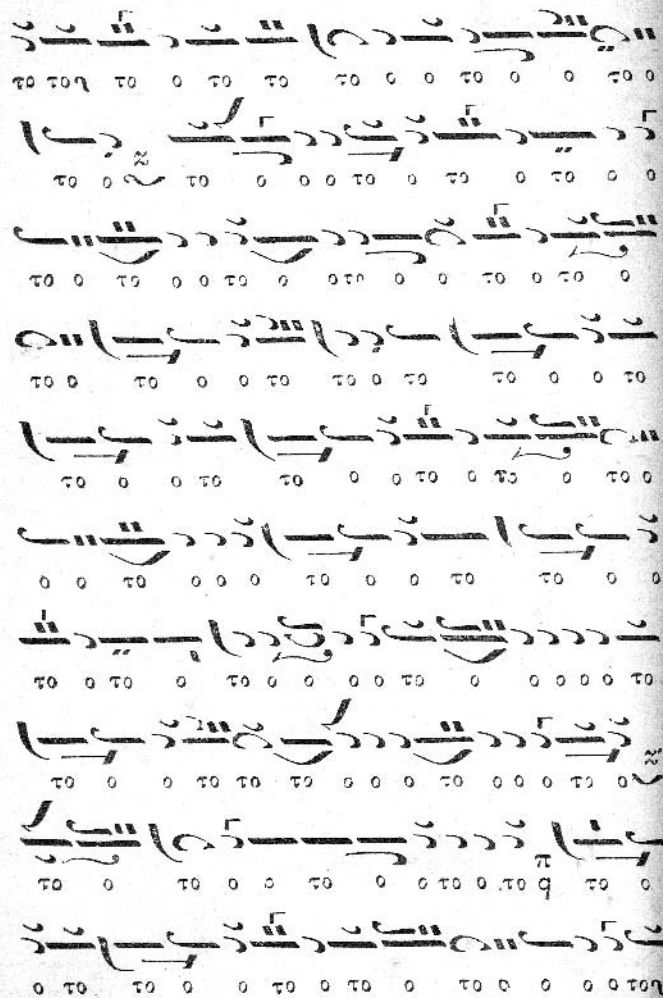 το το ο το το το ο ο το ο ο το ο
το ο το ο ο ο το ο το ο το ο ο
το ο το ο ο το ο ο το ο ο το ο το ο
το ο το ο ο το το ο το το ο ο το
το ο ο το το ο ο το ο ο το ο
ο ο το ο ο ο το ο ο το το ο ο
το ο το ο το ο ο ο ο ο το ο ο ο ο ο το
το ο ο το το το ο ο ο το ο ο ο το ο
π
το ο το ο ο το ο ο το ο το q το ο
ο το το ο ο το ο το ο το ο ο ο ο